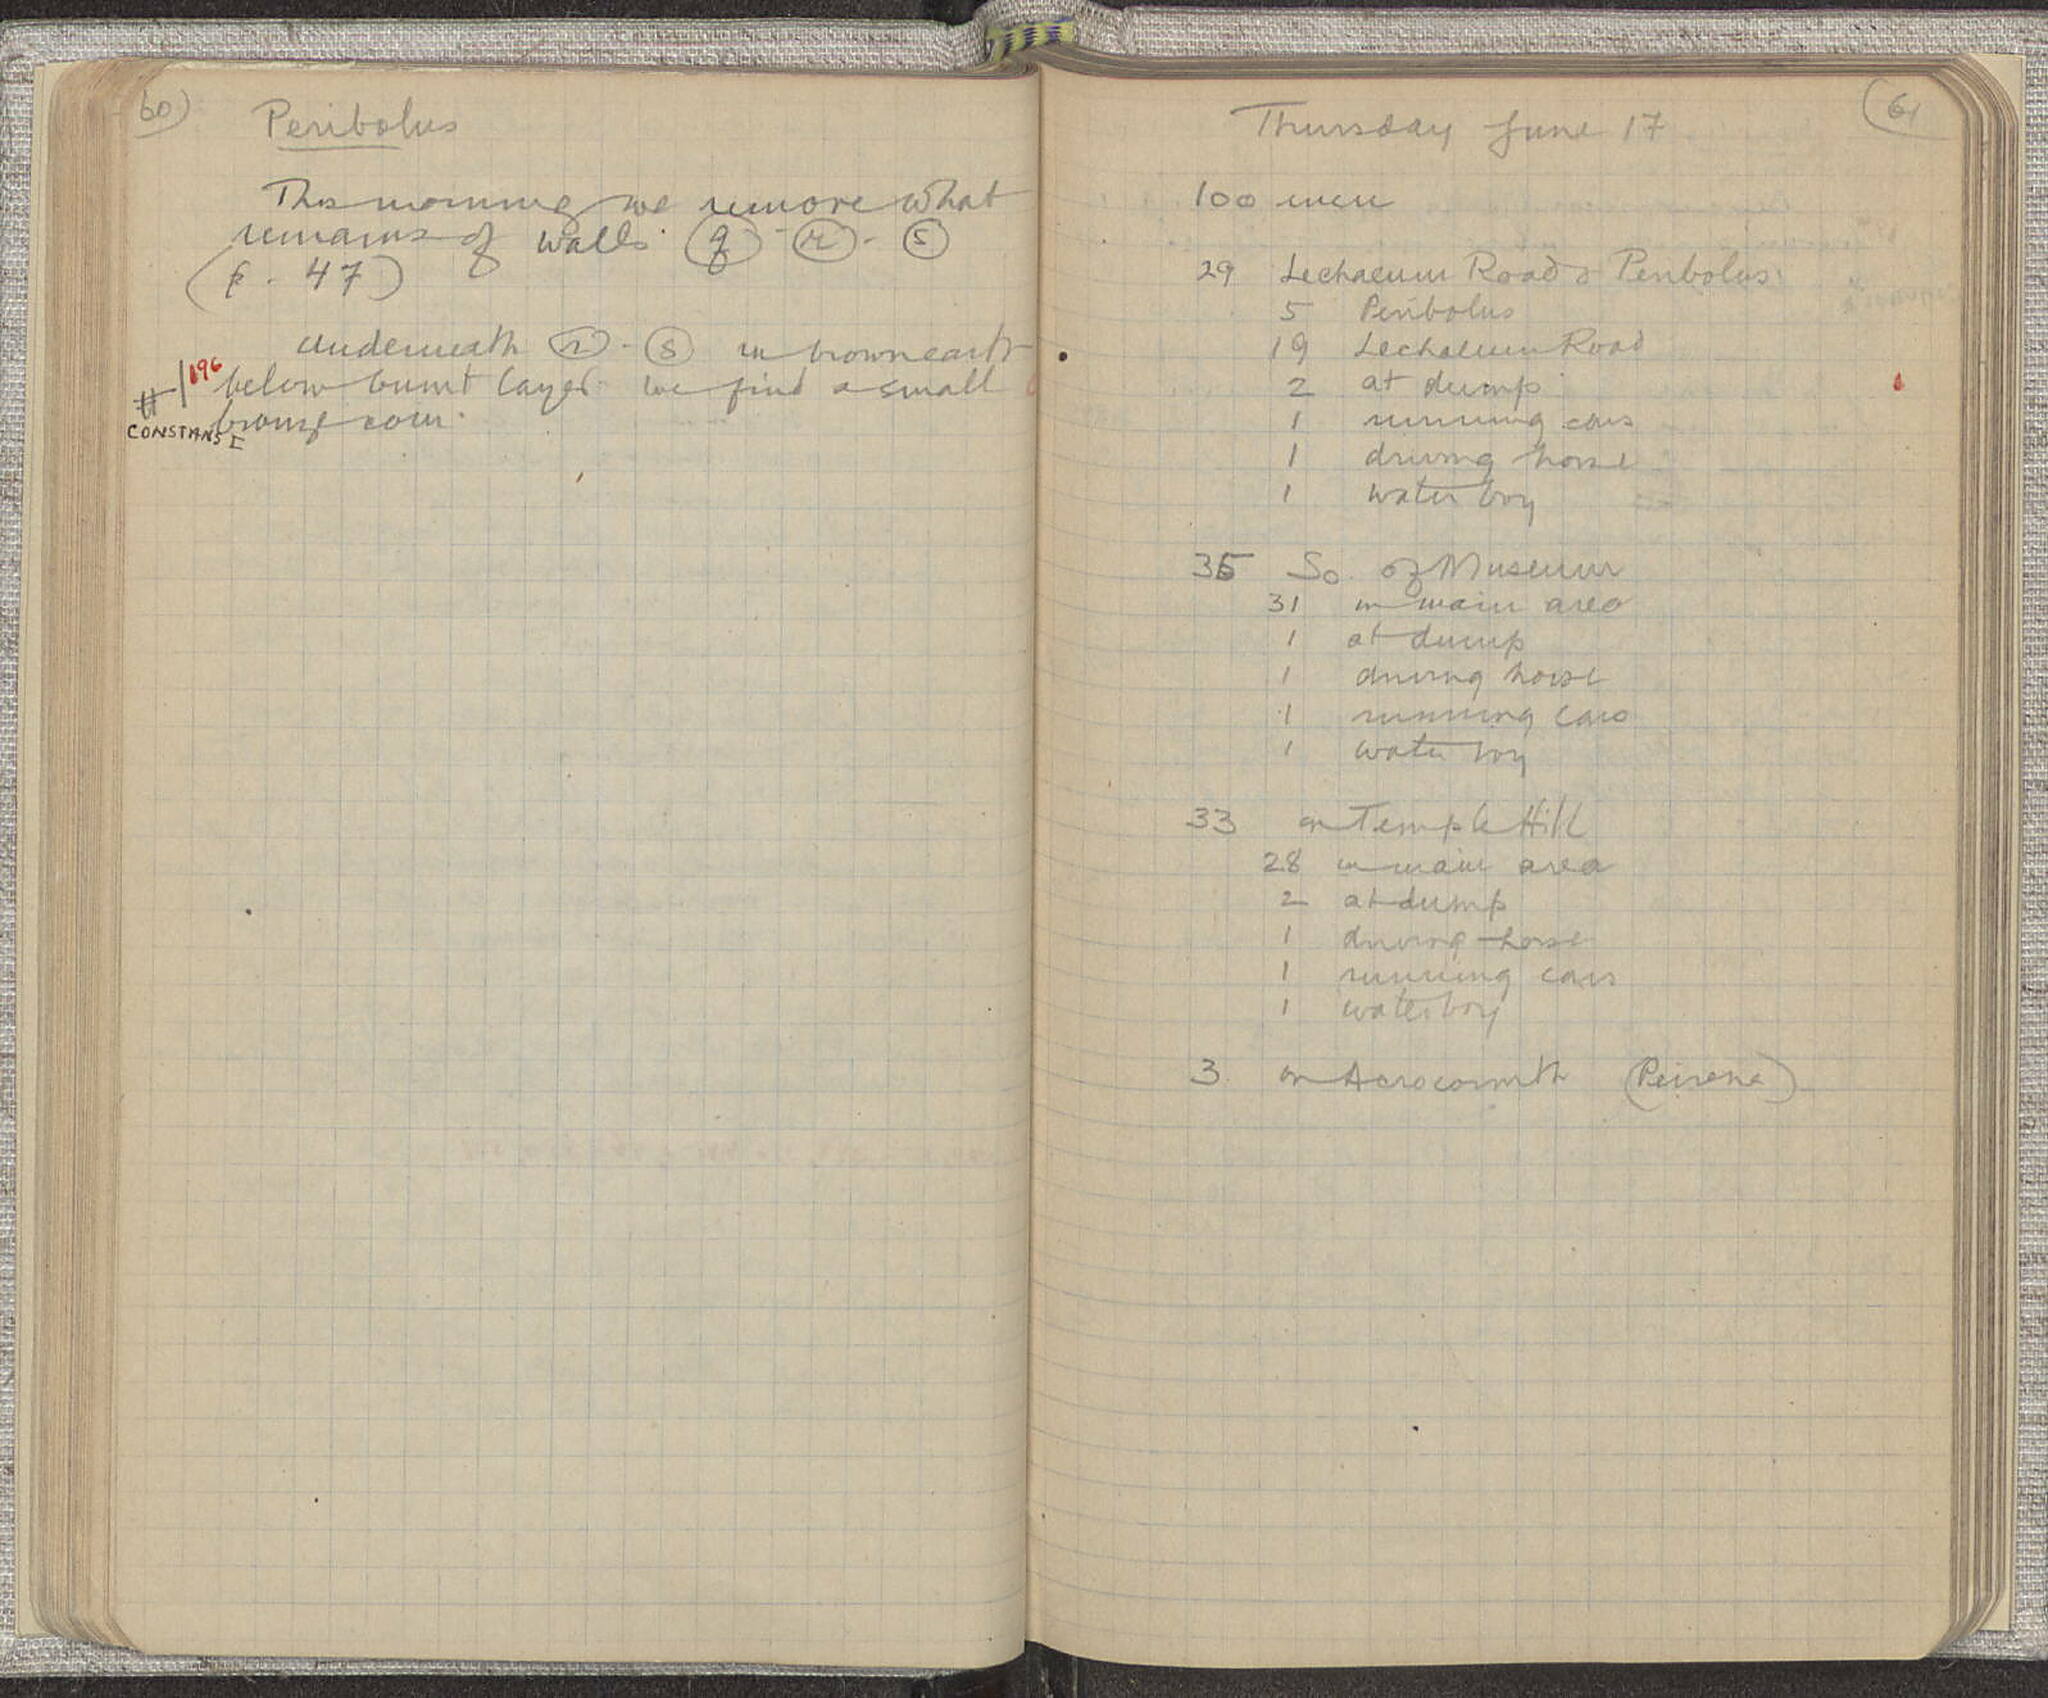 60)
Peribolus
This morning we remove what
remains of walls (q) - (r) - (s)
(p. 47)
underneath (r) - (s) in brown earth
#1 196 below burnt layer we find a small
bronze coin.
CONSTANS I
(61
Thursday June 17
100 men
29 Lechaeum Road & Peribolus
5 Peribolus
19 Lechaeum Road
2 at dump
1 running cars
1 driving horse
1 water boy
35 So. of Museum
31 in main area
1 at dump
1 driving horse
1 running cars
1 water boy
33 on Temple Hill
28 in main area
2 at dump
1 driving horse
1 running cars
1 water boy
3 on Acrocorinth (Peirene)